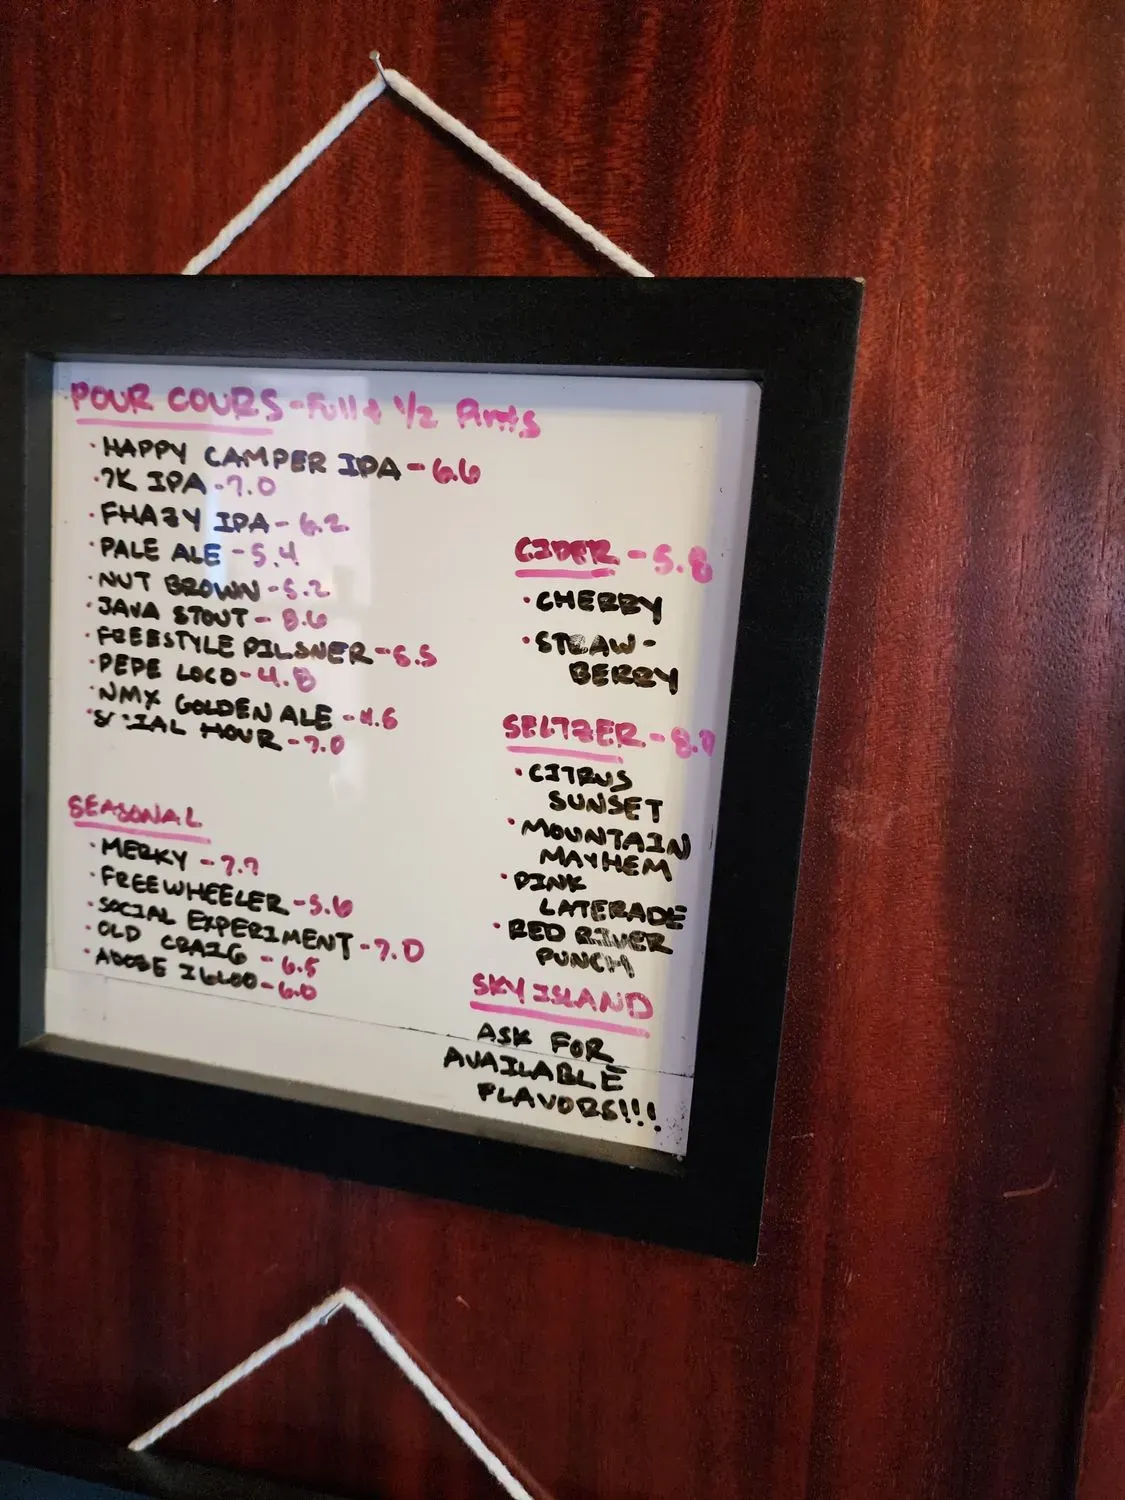 POUR COURS - Full & 1/2 Pints
· HAPPY CAMPER IPA - 6.6
· 7K IPA - 7.0
· FHAZY IPA - 6.2
· PALE ALE - 5.4
· NUT BROWN - 5.2
· JAVA STOUT - 8.6
· FREESTYLE PILSNER - 5.5
· PEPE LOCO - 4.8
· NMX GOLDEN ALE - 4.6
HOUR - 7.0
SEASONAL
· MERKY - 7.7
· FREEWHEELER - 5.6
· SOCIAL EXPERIMENT - 7.0
· OLD CRAIG - 6.5
· ADOBE IGLOO - 6.0
CIDER - 5.8
· CHERRY
· STRAW-
BERRY
SELTZER -
· CITRUS
SUNSET
· MOUNTAIN
MAYHEM
· PINK
LATERADE
· RED RIVER
PUNCH
SKY ISLAND
ASK FOR
AVAILABLE
FLAVORS!!!